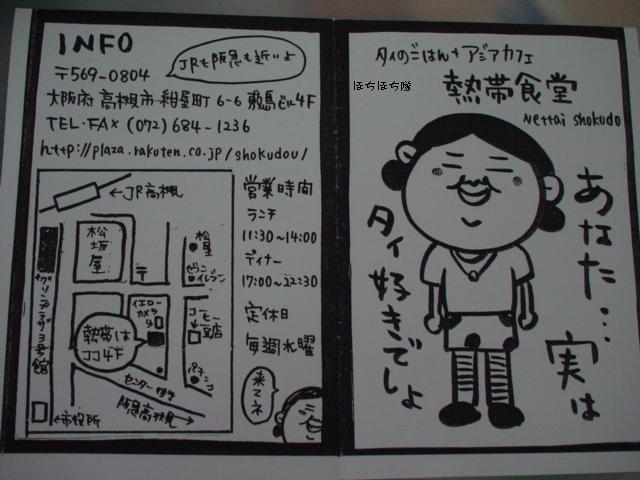 INFO
JRも阪急も近いよ
〒569-0804
大阪府 高槻市 紺屋町 6-6 敷島ビル4F
TEL・FAX (072) 684-1236
http://plaza.rakuten.co.jp/shokudou/
←JR高槻
松坂屋
松屋
セブンイレブン
〒
グリーンプラザ3号館
イエローカメラ
コーヒー豆店
熱帯は
ココ4F
パチンコ
センター街
←市役所
阪急高槻→
営業時間
ランチ
11:30~14:00
ディナー
17:00~22:30
定休日
毎週水曜
来てネ
タイのごはん+アジアカフェ
ほちほち隊
熱帯食堂
Nettai shokudo
あなた…
実は
タイ好きでしょ